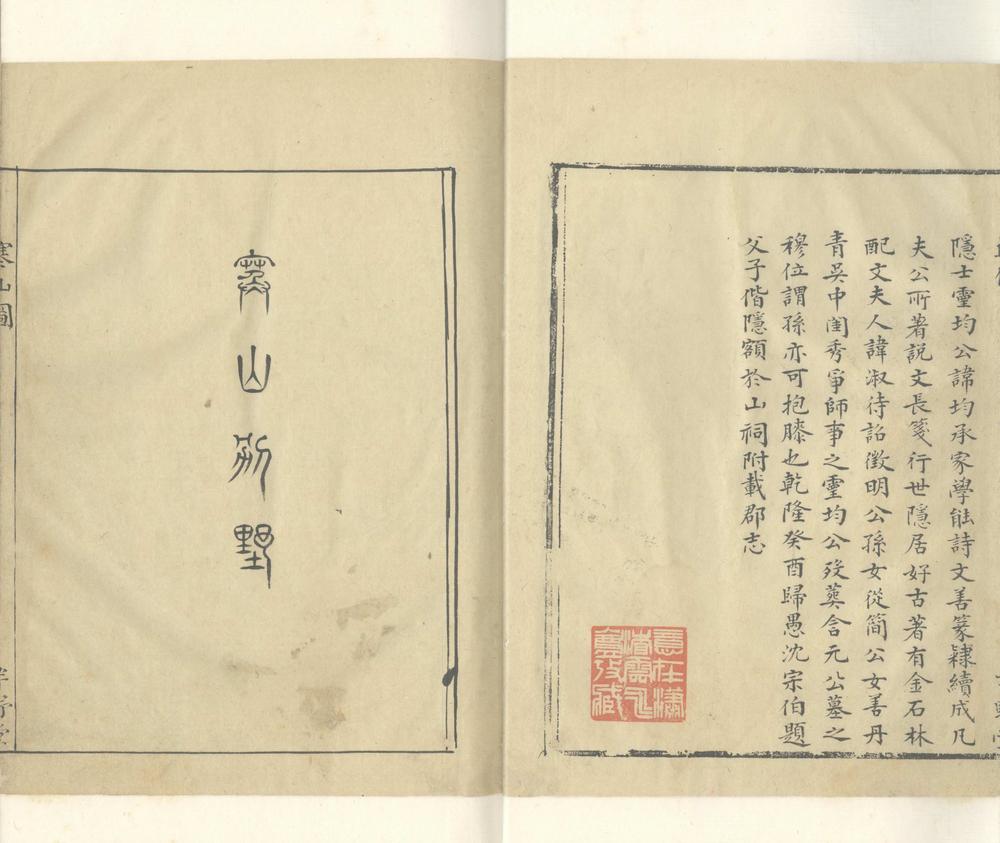 隱士靈均公諱均承家學能詩文善篆隸續成凡
夫公所著說文長箋行世隱居好古著有金石林
配文夫人諱淑待詔徵明公孫女從簡公女善丹
青吳中閨秀爭師事之靈均公歿葬含元公墓之
穆位謂孫亦可抱膝也乾隆癸酉歸愚沈宗伯題
父子偕隱額於山祠附載郡志
寒山別墅
寒山圖